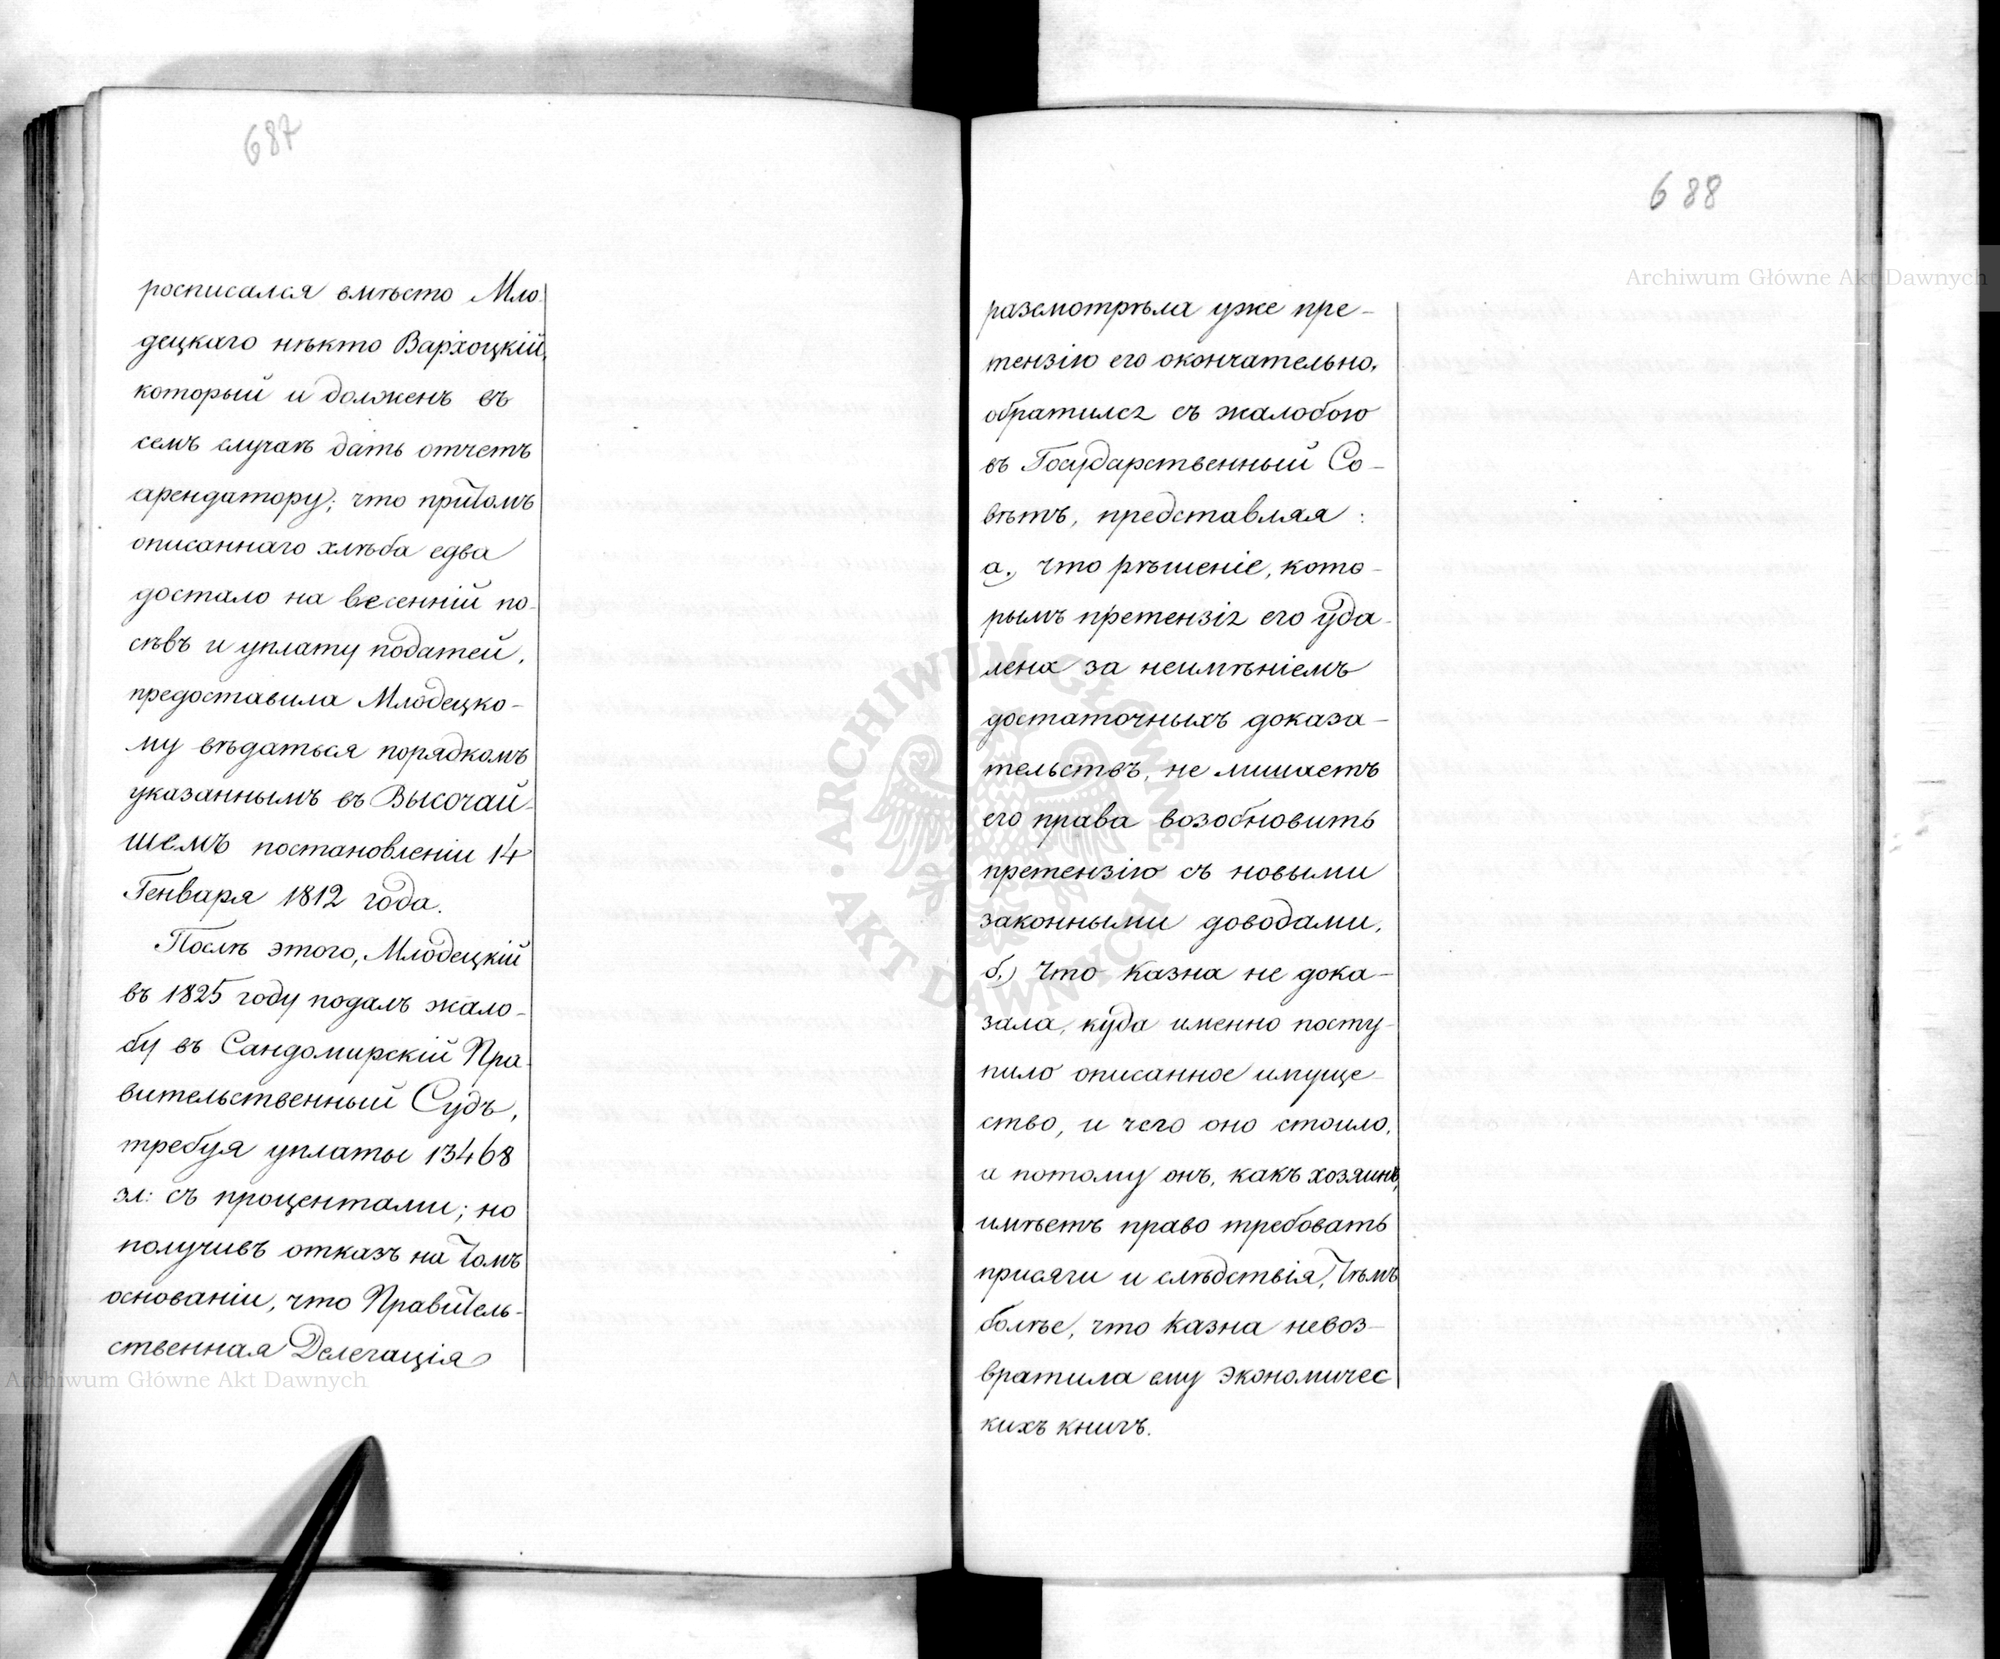 687
росписался вмѣсто Мло-
децкаго нѣкто Вархоцкій,
который и долженъ въ
семъ случаѣ дать отчетъ
арендатору; что притомъ
описаннаго хлѣба едва
достало на весенній по-
сѣвъ и уплату податей,
предоставила Млодецко-
му вѣдаться порядкомъ
указаннымъ въ Высочай-
шемъ постановленіи 14
Генваря 1812 года.
Послѣ этого, Млодецкій
въ 1825 году подалъ жало-
бу въ Сандомирскій Пра-
вительственный Судъ,
требуя уплаты 13468
зл: съ процентами; но
получивъ отказъ на томъ
основаніи, что Правитель-
ственная Делегація
688
разсмотрѣла уже пре-
тензію его окончательно,
обратился съ жалобою
въ Государственный Со-
вѣтъ, представляя:
а.) что рѣшеніе, кото-
рымъ претензія его уда-
лена за неимѣніемъ
достаточныхъ доказа-
тельствъ, не лишаетъ
его права возобновить
претензію съ новыми
законными доводами,
б.) что казна не дока-
зала, куда именно посту-
пило описанное имуще-
ство, и чего оно стоило,
а потому онъ, какъ хозяинъ,
имѣетъ право требовать
присяги и слѣдствія, тѣмъ
болѣе, что казна невоз-
вратила ему экономичес
кихъ книгъ.
Archiwum Główne Akt Dawnych
Archiwum Główne Akt Dawnych
ARCHIWUM GŁÓWNE AKT DAWNYCH